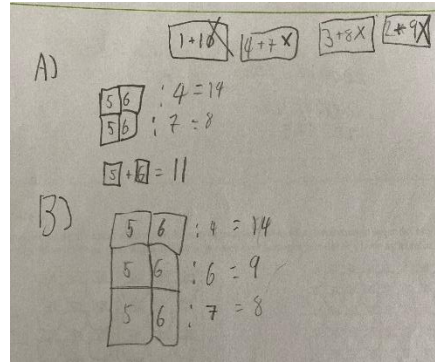 1+10 4+7X 3+8X 2+9X
A)
5 6 : 4 = 14
5 6 : 7 = 8
5 + 6 = 11
B)
5 6 : 4 = 14
5 6 : 6 = 9
5 6 : 7 = 8